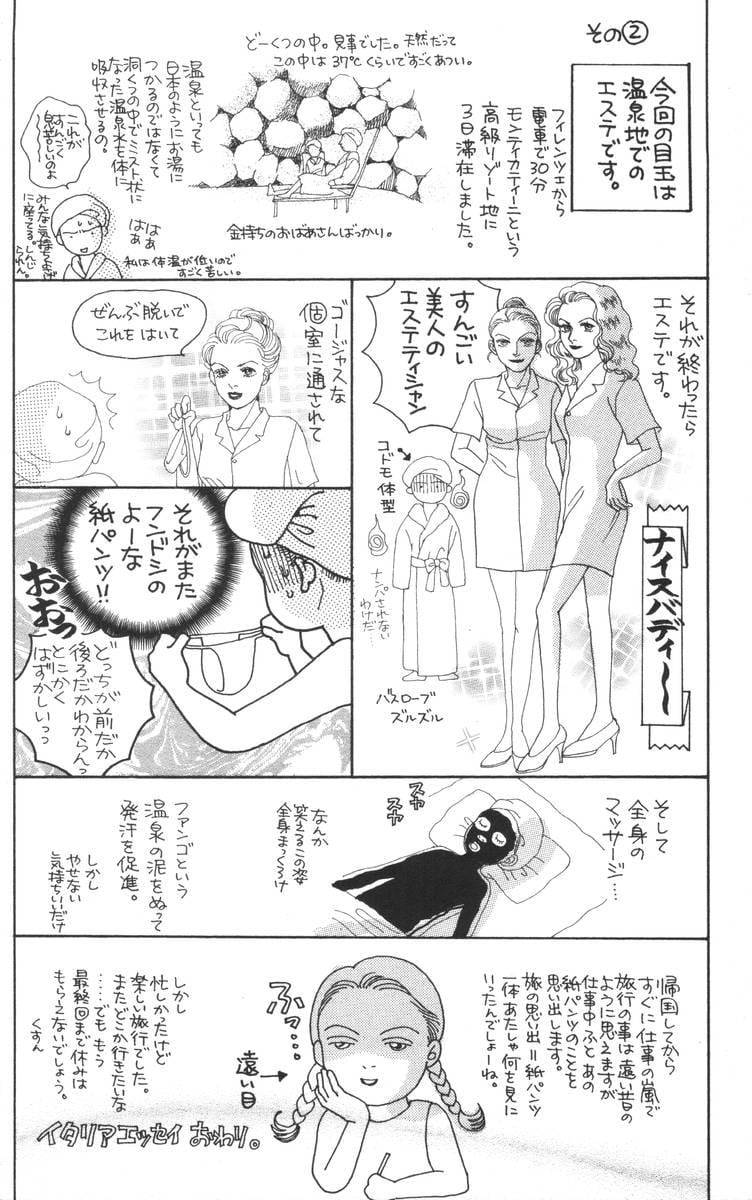 その②
今回の目玉は
温泉地での
エステです。
フィレンツェから
電車で30分
モンティカティーニという
高級リゾート地に
3日滞在しました。
どーくつの中。見事でした。天然だって
この中は37℃くらいですごくあつい。
金持ちのおばあさんばっかり。
温泉といっても
日本のようにお湯に
つかるのではなくて
洞くつの中でミスト状に
なった温泉水を体に
吸収させるの。
これが
すんごく
息苦しいのよ
はぁ
はぁ
私は体温が低いので
すごく苦しい。
みんな気持ちよさげ
に座ってる。しんじ
られん。
それが終わったら
エステです。
すんごい
美人の
エステティシャン
ナイスバディ〜
コドモ体型
ナンパされない
わけだ…
バスローブ
ズルズル
ゴージャスな
個室に通されて
ぜんぶ脱いで
これをはいて
それがまた
フンドシの
よーな
紙パンツ!!
おおっ
どっちが前だか
後ろだかわからんっ
とにかく
はずかしいっっ
そして
全身の
マッサージ……
スヤ
スヤ
なんか
笑えるこの姿
全身まっくろけ
ファンゴという
温泉の泥をぬって
発汗を促進。
しかし
やせない
気持ちいいだけ
帰国してから
すぐに仕事の嵐で
旅行の事は遠い昔の
ように思えますが
仕事中ふとあの
紙パンツのことを
思い出します。
旅の思い出=紙パンツ
一体あたしゃ何を見に
いったんでしょーね。
ふっ…
遠い目
しかし
忙しかったけど
楽しい旅行でした。
またどこか行きたいな
……でももう
最終回まで休みは
もらえないでしょう。
くすん
イタリアエッセイおわり。